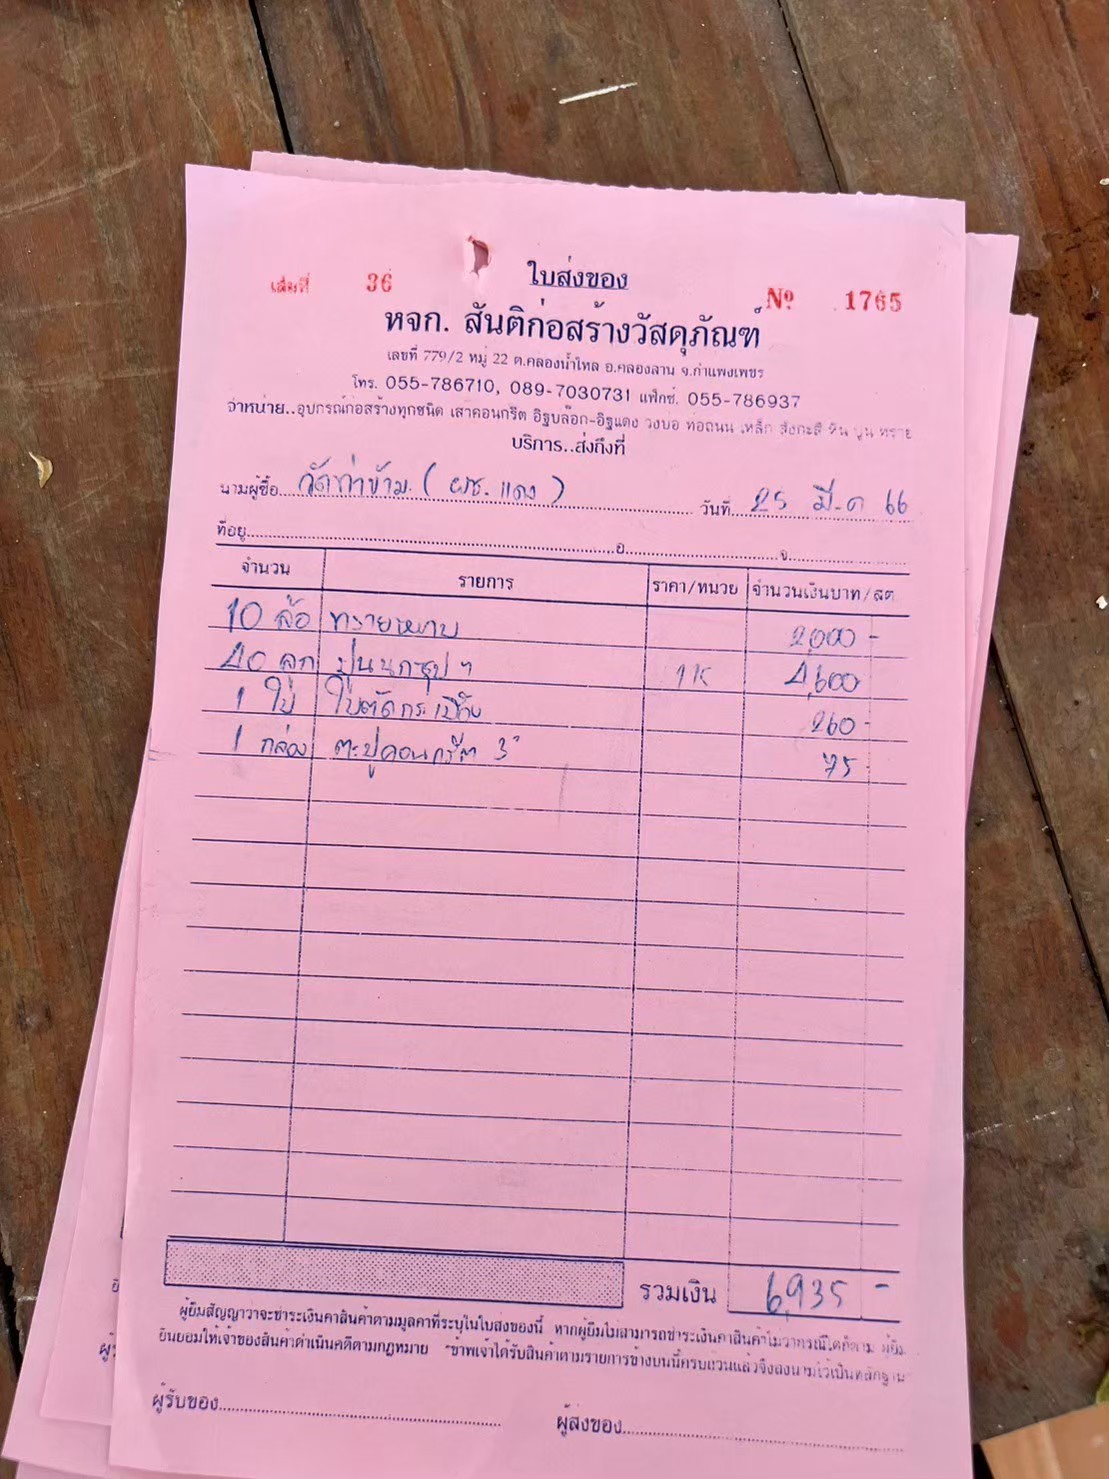 ใบส่งของ
เล่มที่ 36 Nº 1765
หจก. สันติก่อสร้างวัสดุภัณฑ์
เลขที่ 779/2 หมู่ 22 ต.คลองน้ำไหล อ.คลองลาน จ.กำแพงเพชร
โทร. 055-786710, 089-7030731 แฟ็กซ์. 055-786937
จำหน่าย..อุปกรณ์ก่อสร้างทุกชนิด เสาคอนกรีต อิฐบล๊อก-อิฐแดง วงบ่อ ท่อถนน เหล็ก สังกะสี หิน ปูน ทราย
บริการ..ส่งถึงที่
นามผู้ซื้อ วัดท่าข้าม (ผช. แดง) วันที่ 25 มี.ค 66
ที่อยู่ อ. จ.
จำนวน รายการ ราคา/หน่วย จำนวนเงินบาท/สต.
10 ล้อ ทรายหยาบ 2,000 -
40 ลูก ปูนนกซุปฯ 115 4,600
1 ใบ ใบตัดกระเบื้อง 260 -
1 กล่อง ตะปูคอนกรีต 3" 75 -
รวมเงิน 6,935 -
ผู้ยืมสัญญาว่าจะชำระเงินค่าสินค้าตามมูลค่าที่ระบุในใบส่งของนี้ หากผู้ยืมไม่สามารถชำระเงินค่าสินค้าไม่ว่ากรณีใดก็ตาม ผู้ยืม
ยินยอมให้เจ้าของสินค้าดำเนินคดีตามกฎหมาย "ข้าพเจ้าได้รับสินค้าตามรายการข้างบนนี้ครบถ้วนแล้วจึงลงนามไว้เป็นหลักฐาน
ผู้รับของ ผู้ส่งของ